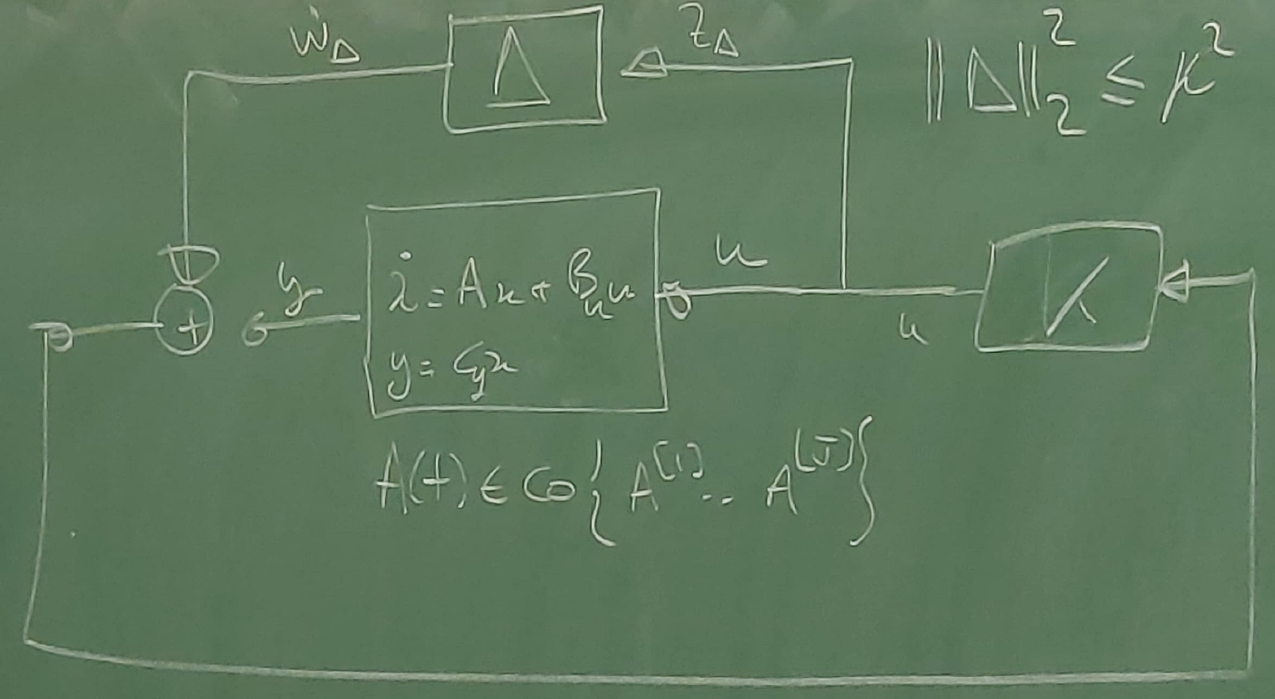 ẇ_Δ
Δ
z_Δ
‖Δ‖₂² ≤ μ²
y
ẋ = Ax + B_u u
y = C_y x
u
u
K
+
A(t) ∈ Co{A^[1] .. A^[J]}